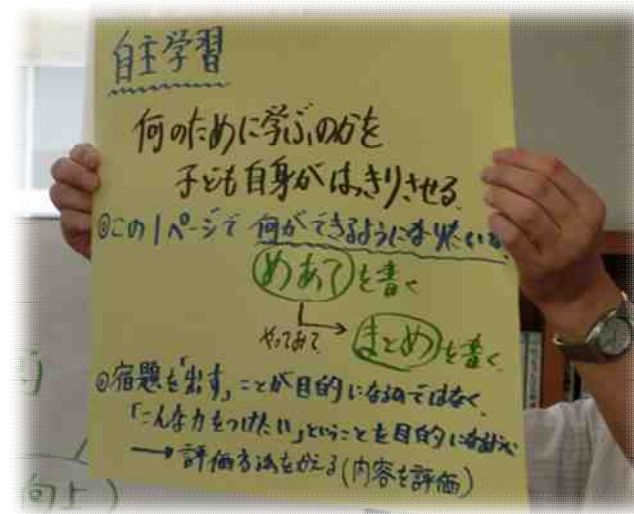 自主学習
何のために学ぶのかを
子ども自身がはっきりさせる。
◎この1ページで 何ができるようになりたいか
めあてを書く
やってみて
まとめを書く
◎宿題を「出す」ことが目的になるのではなく、
「こんな力をつけたい」ということを目的になるように
→評価方法をかえる(内容を評価)
向上)